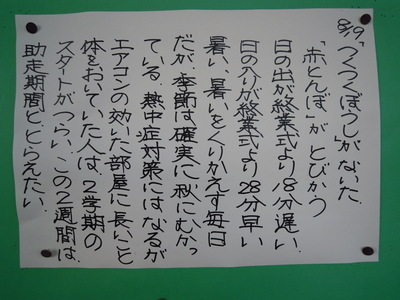 8/19 「つくつくぼうし」がないた。
「赤とんぼ」がとびかう
日の出が終業式より18分遅い。
日の入りが終業式より28分早い
暑い、暑いをくりかえす毎日
だが、季節は確実に秋にむかっ
ている。熱中症対策にはなるが
エアコンの効いた部屋に長いこと
体をおいていた人は、2学期の
スタートがつらい。この2週間は、
助走期間ととらえたい。